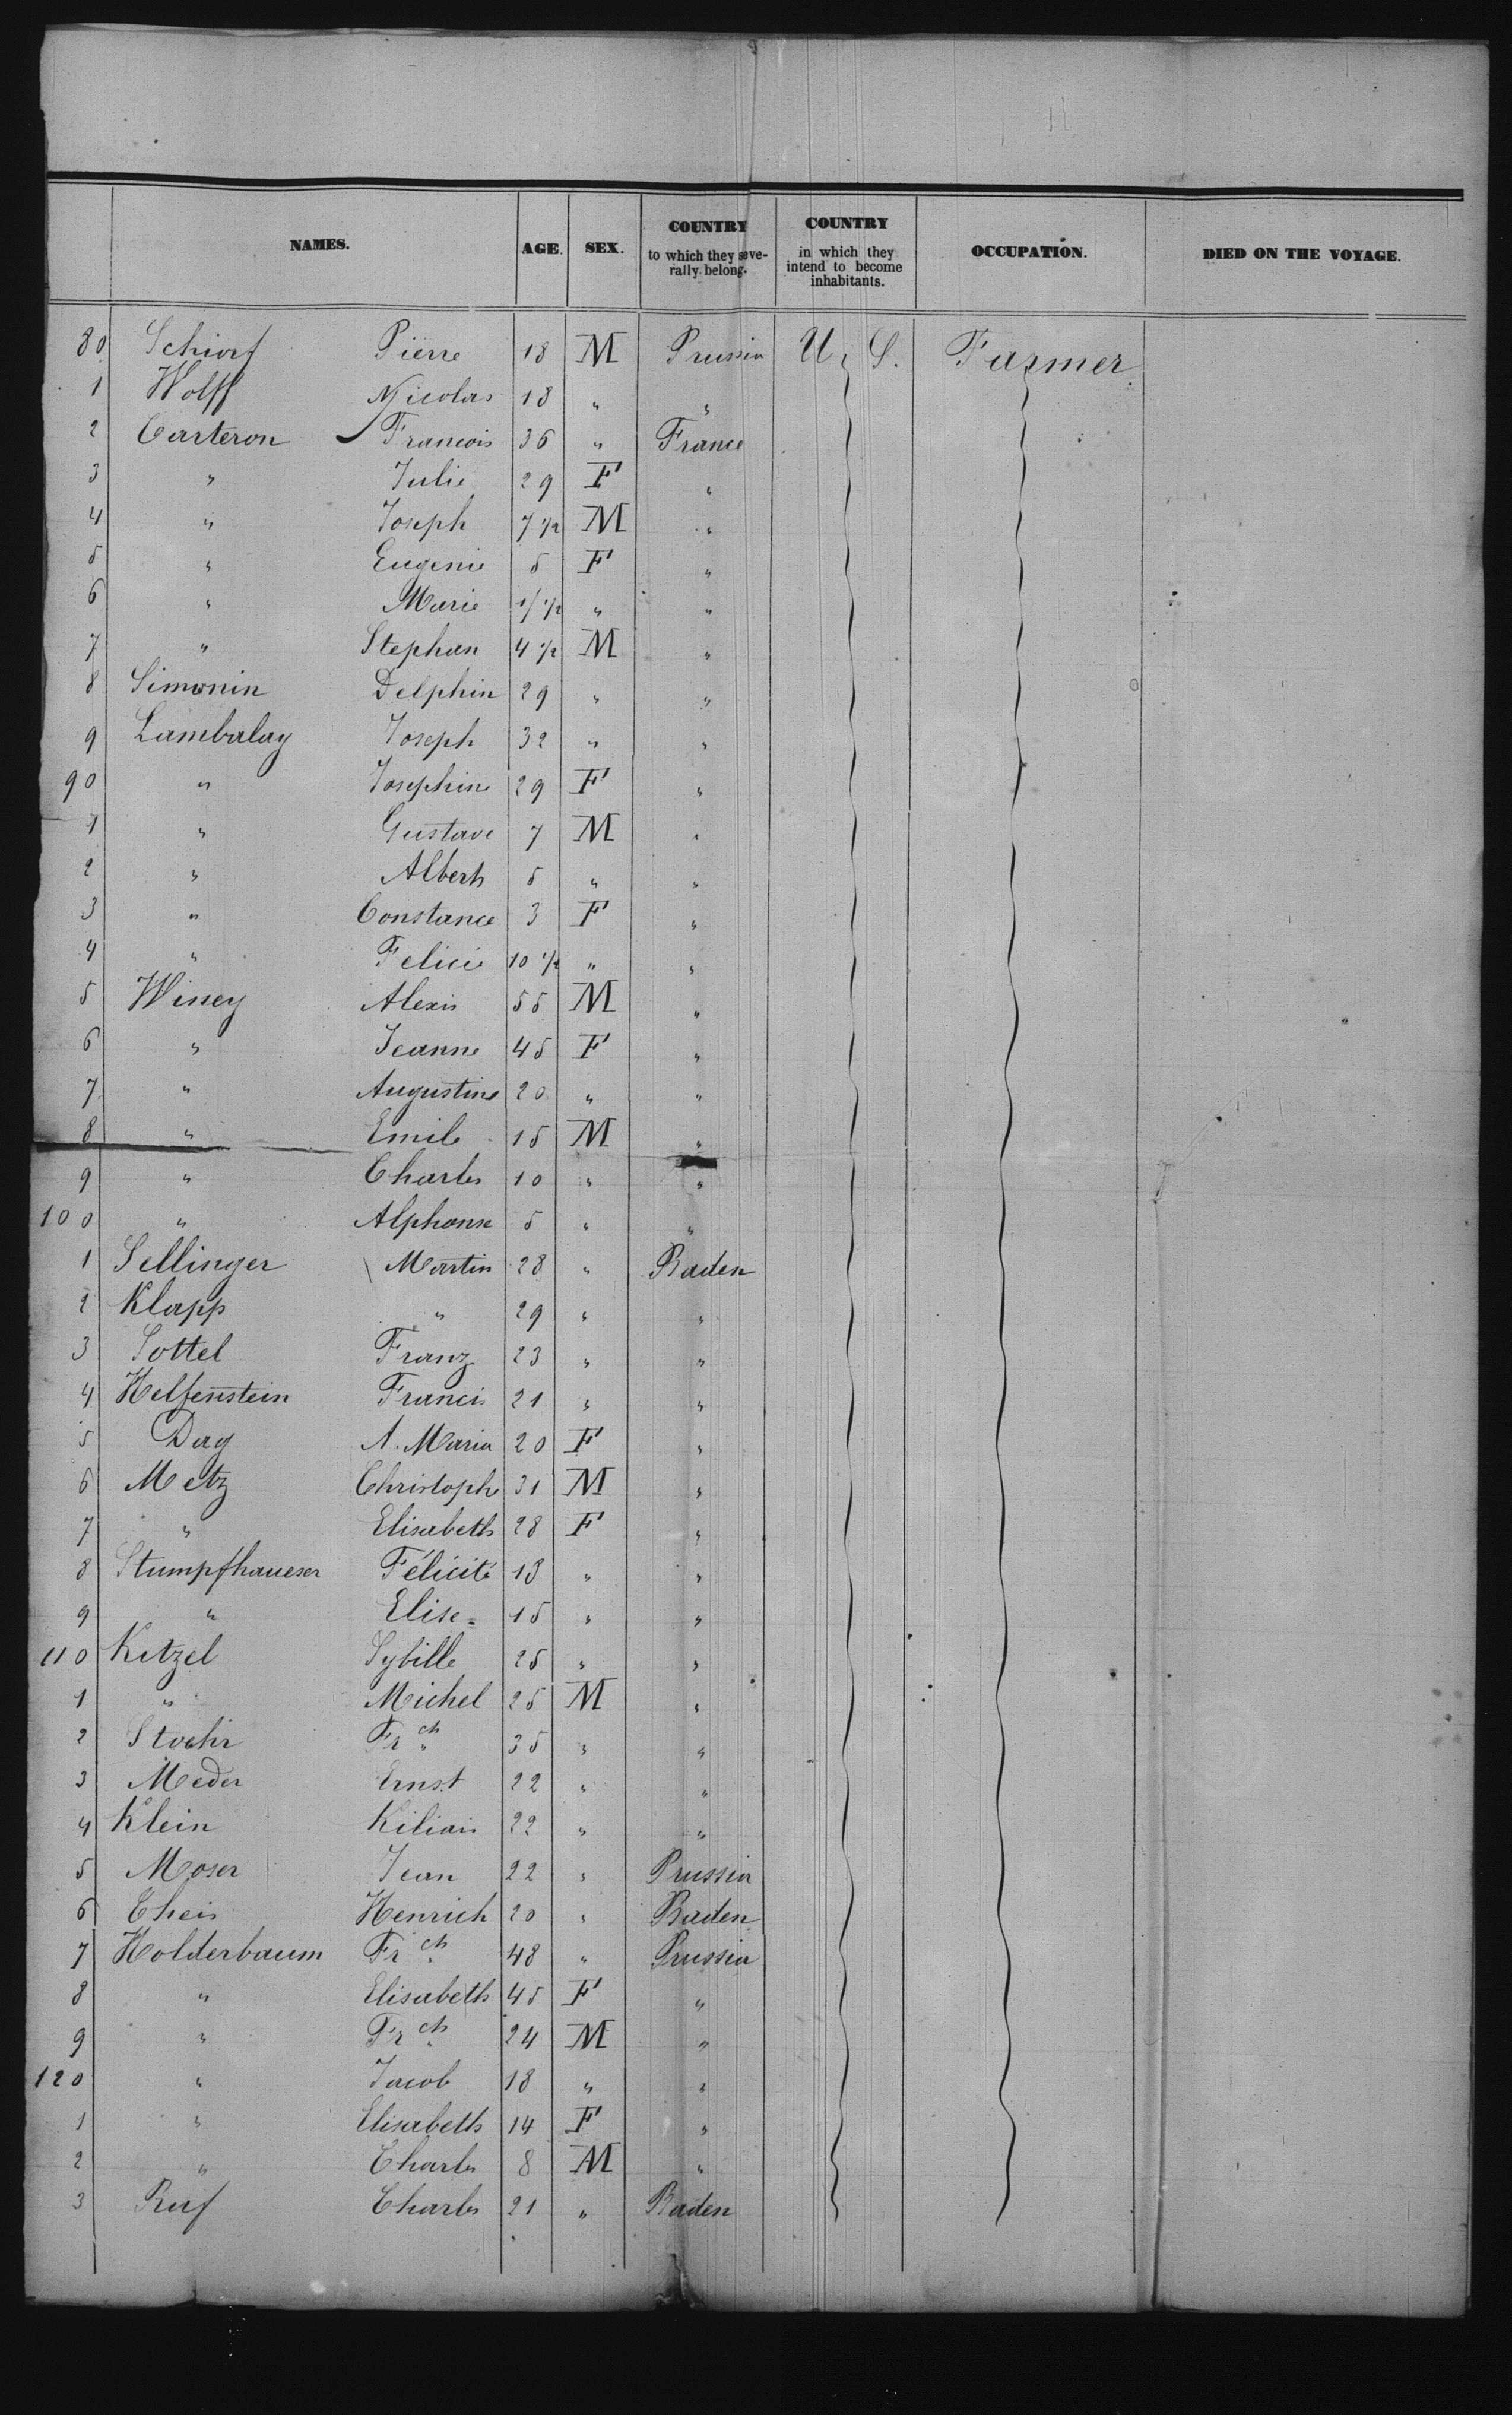 NAMES. AGE. SEX. COUNTRY to which they severally belong. COUNTRY in which they intend to become inhabitants. OCCUPATION. DIED ON THE VOYAGE.
80 Schiorf Pierre 18 M Prussia U. S. Farmer
1 Wolff Nicolas 18 " "
2 Carteron Francois 36 " France
3 " Julie 29 F "
4 " Joseph 7 1/2 M "
5 " Eugenie 5 F "
6 " Marie 1/2 " "
7 " Stephan 4 1/2 M "
8 Simonin Delphin 29 " "
9 Lambalay Joseph 32 " "
90 " Josephine 29 F "
1 " Gustave 7 M "
2 " Albert 5 " "
3 " Constance 3 F "
4 " Felicie 10 1/2 " "
5 Winey Alexis 55 M "
6 " Jeanne 45 F "
7 " Augustine 20 " "
8 " Emile 15 M "
9 " Charles 10 " "
100 " Alphonse 5 " "
1 Sellinger Martin 28 " Baden
2 Klapp " 29 " "
3 Sottel Franz 23 " "
4 Helfenstein Francis 21 " "
5 Dag A. Maria 20 F "
6 Metz Christophe 31 M "
7 " Elisabeth 28 F "
8 Stumpfhaueser Félicité 18 " "
9 " Elise 15 " "
110 Kitzel Sybille 25 " "
1 " Michel 25 M "
2 Stoehr Frch 35 " "
3 Meder Ernst 22 " "
4 Klein Kilian 22 " "
5 Moser Jean 22 " Prussia
6 Theis Henrich 20 " Baden
7 Holderbaum Frch 48 " Prussia
8 " Elisabeth 45 F "
9 " Frch 24 M "
120 " Jacob 18 " "
1 " Elisabeth 14 F "
2 " Charles 8 M "
3 Ruf Charles 21 " Baden